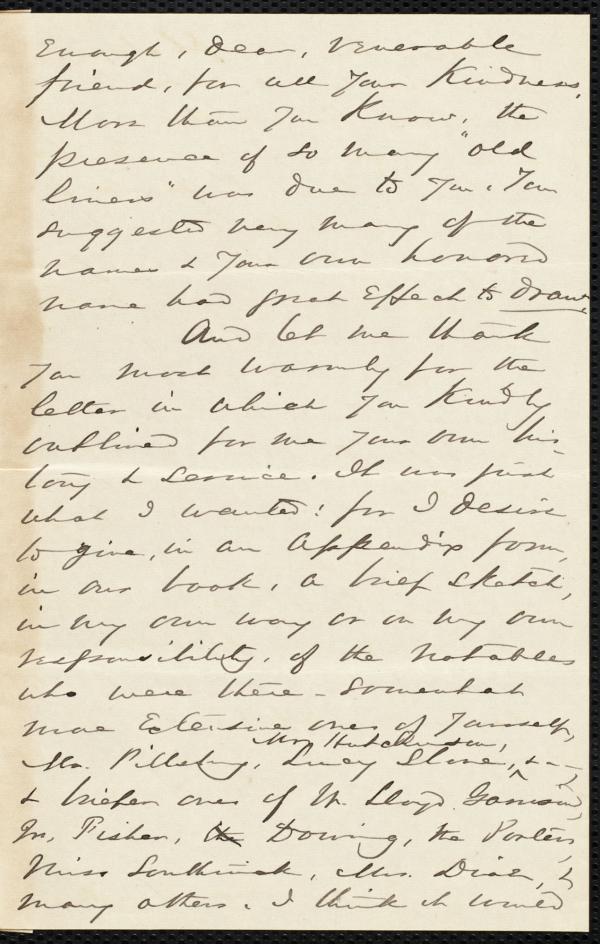 Enough, dear, venerable
friend, for all your kindness.
More than you know, the
presence of so many "old
liners" was due to you. You
suggested very many of the
names & your own honored
name had great effect to draw.
And let me thank
you most warmly for the
letter in which you kindly
outlined for me your own his-
tory & service. It was just
what I wanted: for I desire
to give, in an Appendix form,
in our book, a brief sketch,
in my own way or on my own
responsibility, of the notables
who were there - somewhat
more extensive ones of yourself,
Mr. Hutchinson,
Mr. Pillsbury, Lucy Stone, &-,
& briefer ones of W. Lloyd Garrison,
Jr., Fisher, the Downing, the Porters,
Miss Southwick, Mrs. Diaz, &
many others. I think it would